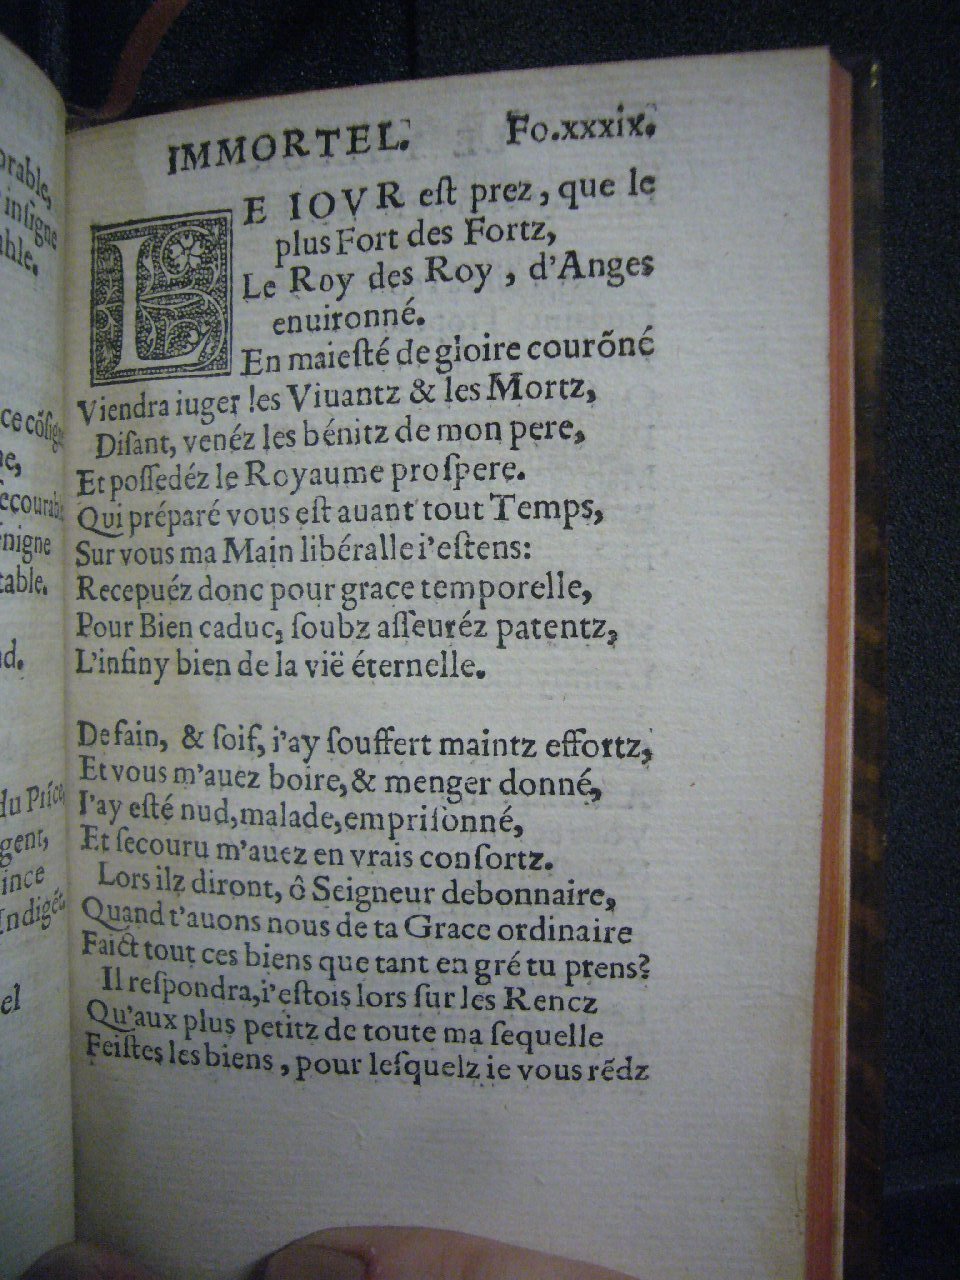 IMMORTEL. Fo.xxxix.
LE IOVR eſt prez, que le
plus Fort des Fortz,
Le Roy des Roy, d'Anges
enuironné.
En maieſté de gloire courõné
Viendra iuger les Viuantz & les Mortz,
Diſant, venéz les bénitz de mon pere,
Et poſſedéz le Royaume proſpere.
Qui préparé vous eſt auant tout Temps,
Sur vous ma Main libéralle i'eſtens:
Recepuéz donc pour grace temporelle,
Pour Bien caduc, ſoubz aſſeuréz patentz,
L'infiny bien de la vië éternelle.
De fain, & ſoif, i'ay ſouffert maintz effortz,
Et vous m'auez boire, & menger donné,
I'ay eſté nud, malade, empriſonné,
Et ſecouru m'auez en vrais confortz.
Lors ilz diront, ô Seigneur debonnaire,
Quand t'auons nous de ta Grace ordinaire
Faict tout ces biens que tant en gré tu prens?
Il reſpondra, i'eſtois lors ſur les Rencz
Qu'aux plus petitz de toute ma ſequelle
Feiſtes les biens, pour leſquelz ie vous rẽdz
orable,
inſigne
able.
ce cõſig
ne,
ſecourab
énigne
table.
nd.
du Príce
gent,
ince
Indigét
el